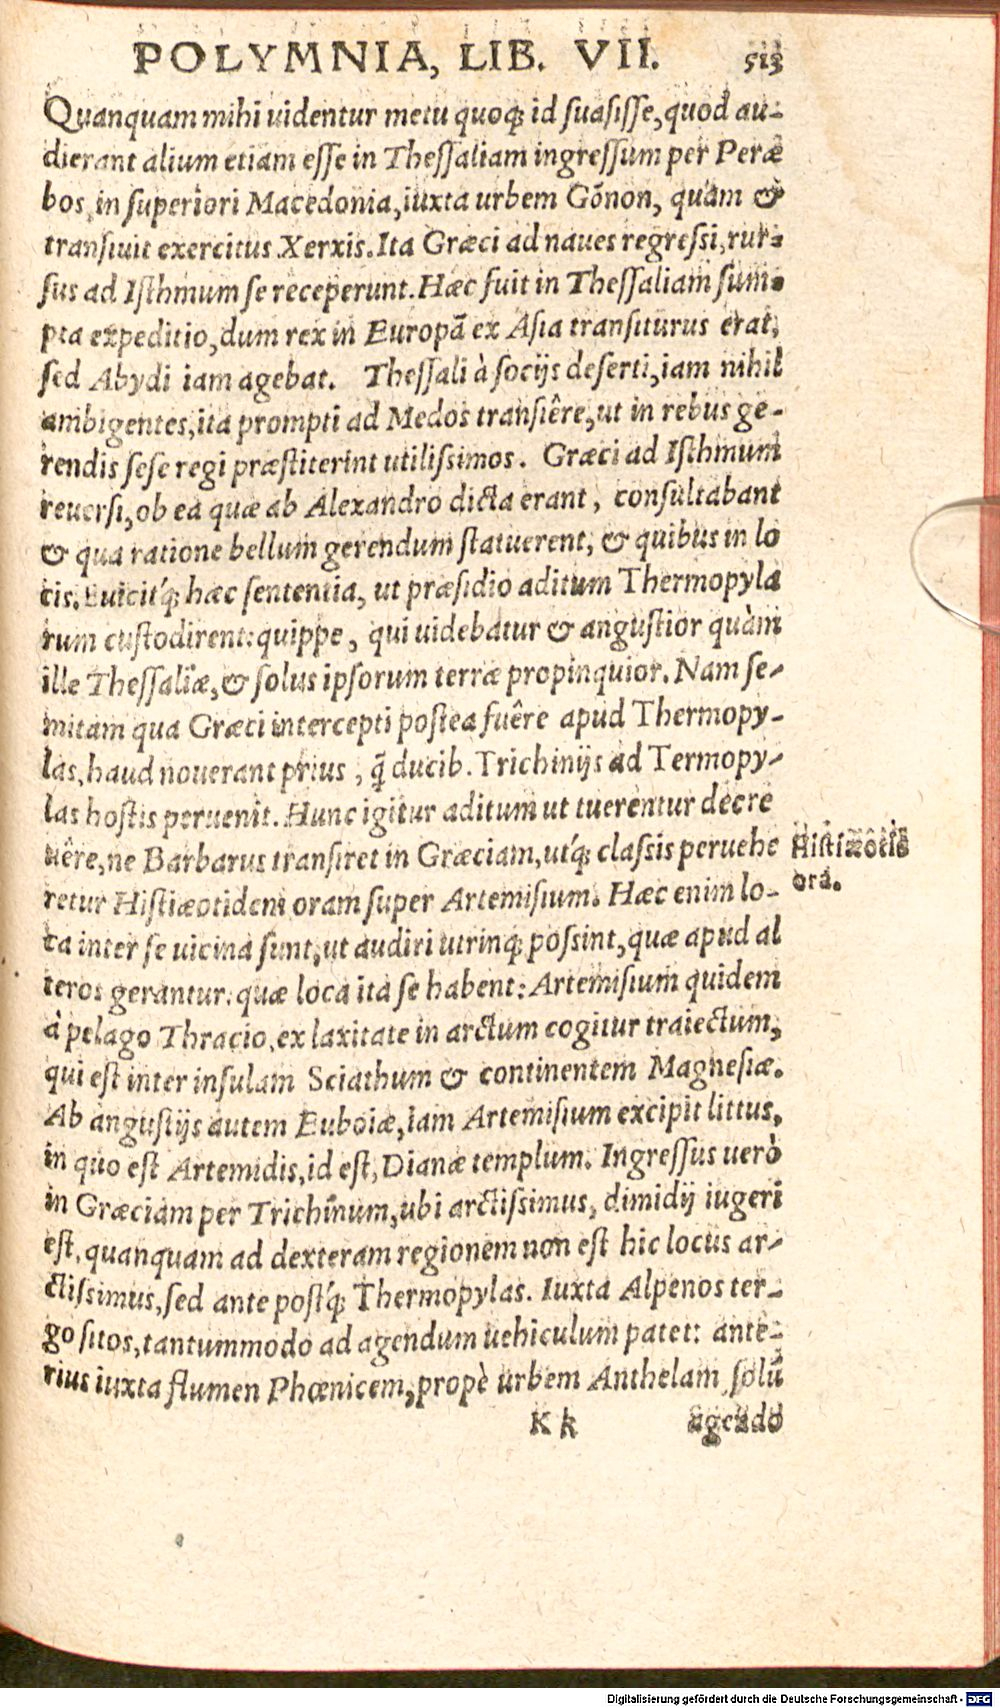 POLYMNIA, LIB. VII. 513
Quanquam mihi uidentur metu quoq; id suasisse, quod au-
dierant alium etiam esse in Thessaliam ingressum per Peræ
bos, in superiori Macedonia, iuxta urbem Gônon, quàm &
transiuit exercitus Xerxis. Ita Græci ad naues regressi, rur-
sus ad Isthmum se receperunt. Hæc fuit in Thessaliam sum-
pta expeditio, dum rex in Europã ex Asia transiturus erat,
sed Abydi iam agebat. Thessali à socijs deserti, iam nihil
ambigentes, ita prompti ad Medos transiêre, ut in rebus ge-
rendis sese regi præstiterint utilissimos. Græci ad Isthmum
reuersi, ob ea quæ ab Alexandro dicta erant, consultabant
& qua ratione bellum gerendum statuerent, & quibus in lo
cis. Euicitq́; hæc sententia, ut præsidio aditum Thermopyla
rum custodirent: quippe, qui uidebatur & angustior quàm
ille Thessaliæ, & solus ipsorum terræ propinquior. Nam se-
mitam qua Græci intercepti postea fuêre apud Thermopy-
las, haud nouerant prius, q̃ ducib. Trichinijs ad Termopy-
las hostis peruenit. Hunc igitur aditum ut tuerentur decre
uêre, ne Barbarus transiret in Græciam, utq́; classis peruehe
retur Histiæotidem oram super Artemisium. Hæc enim lo-
ca inter se uicina sunt, ut audiri utrinq; possint, quæ apud al
teros gerantur: quæ loca ita se habent: Artemisium quidem
à pelago Thracio, ex laxitate in arctum cogitur traiectum,
qui est inter insulam Sciathum & continentem Magnesiæ.
Ab angustijs autem Euboiæ, iam Artemisium excipit littus,
in quo est Artemidis, id est, Dianæ templum. Ingressus uerò
in Græciam per Trichinum, ubi arctissimus, dimidij iugeri
est, quanquam ad dexteram regionem non est hic locus ar-
ctissimus, sed ante postq́; Thermopylas. Iuxta Alpenos ter-
go sitos, tantummodo ad agendum uehiculum patet: ante-
rius iuxta flumen Phœnicem, propè urbem Anthelam, solũ
Kk agendo
Histiæotis
ora.
Digitalisierung gefördert durch die Deutsche Forschungsgemeinschaft - DFG